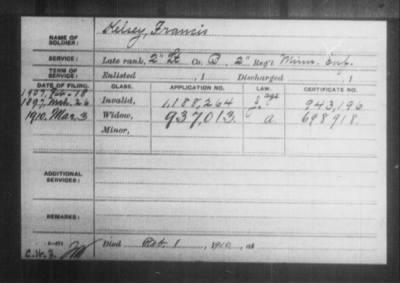 Kelsey, Francis
NAME OF SOLDIER:
SERVICE: Late rank, 2" Lt Co. B, 2" Reg't Minn. Inf.
TERM OF SERVICE: Enlisted , 1 Discharged , 1
DATE OF FILING. CLASS. APPLICATION NO. LAW. CERTIFICATE NO.
1907, Feb. 18 Invalid, 1,188,264 943,196
1897, Mch. 26
1910, Mar. 3 Widow, 937,013. a 698918.
Minor,
ADDITIONAL SERVICES:
REMARKS:
Died Feb. 1, 1910, at